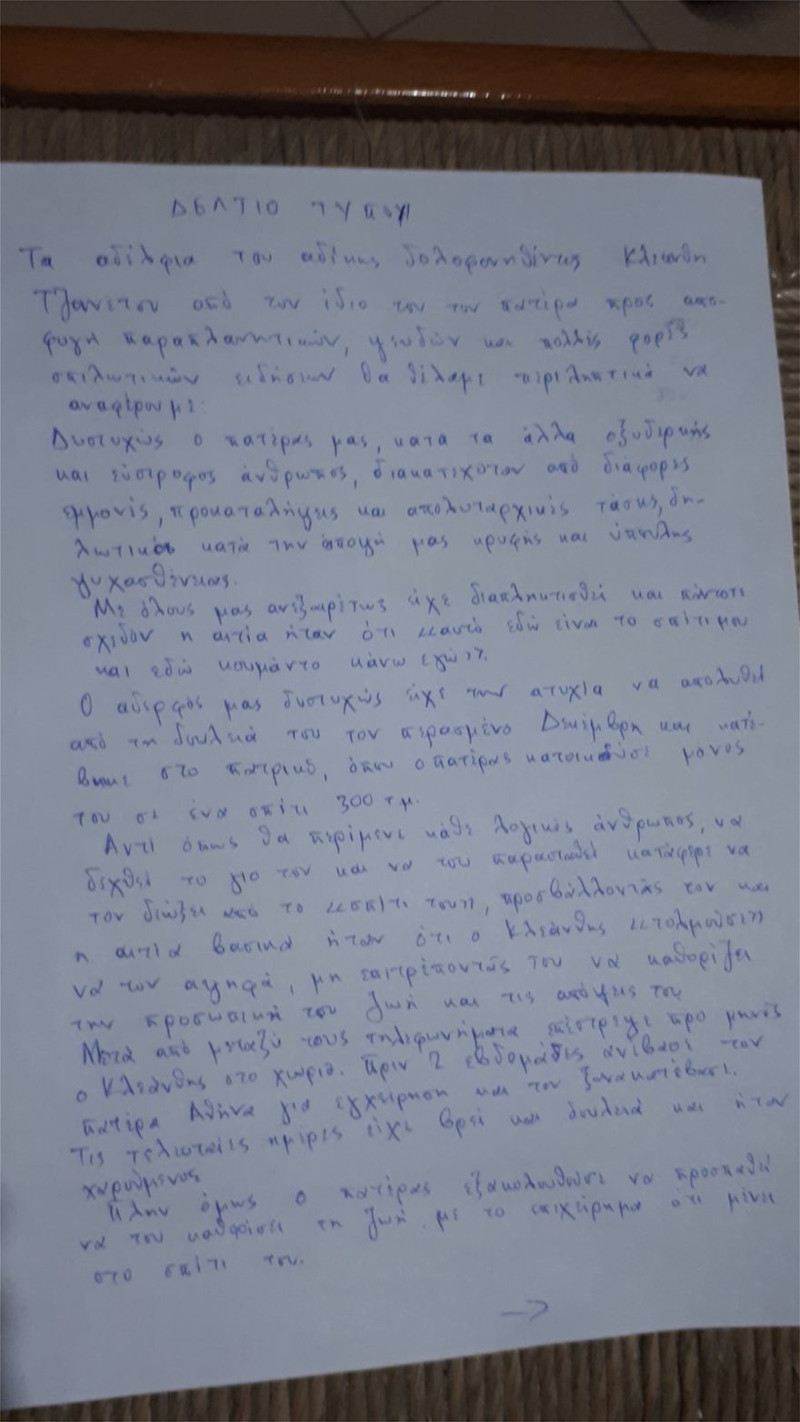 ΔΕΛΤΙΟ ΤΥΠΟΥ
Τα αδέλφια του αδίκως δολοφονηθέντος Κλεάνθη
Τζανέτου από τον ίδιο του τον πατέρα προς απο-
φυγή παραπλανητικών, ψευδών και πολλές φορές
σπιλωτικών ειδήσεων θα θέλαμε περιληπτικά να
αναφέρουμε:
Δυστυχώς ο πατέρας μας, κατά τα άλλα οξυδερκής
και εύστροφος άνθρωπος, διακατεχόταν από διάφορες
εμμονές, προκαταλήψεις και απολυταρχικές τάσεις, δη-
λωτικές κατά την άποψή μας κρυφής και ύπουλης
ψυχασθένειας.
Με όλους μας ανεξαιρέτως είχε διαπληκτισθεί και πάντοτε
σχεδόν η αιτία ήταν ότι «αυτό εδώ είναι το σπίτι μου
και εδώ κουμάντο κάνω εγώ».
Ο αδερφός μας δυστυχώς είχε την ατυχία να απολυθεί
από τη δουλειά του τον περασμένο Δεκέμβρη και κατέ-
βηκε στο πατρικό, όπου ο πατέρας κατοικούσε μόνος
του σε ένα σπίτι 300 τ.μ.
Αντί όπως θα περίμενε κάθε λογικός άνθρωπος, να
δεχθεί το γιο του και να του παρασταθεί κατάφερε να
τον διώξει από το «σπίτι του», προσβάλλοντάς τον και
η αιτία βασικά ήταν ότι ο Κλεάνθης «τολμούσε»
να τον αψηφά, μη επιτρέποντάς του να καθορίζει
την προσωπική του ζωή και τις απόψεις του
Μετά από μεταξύ τους τηλεφωνήματα επέστρεψε προ μηνός
ο Κλεάνθης στο χωριό. Πριν 2 εβδομάδες ανέβασε τον
πατέρα Αθήνα για εγχείρηση και τον ξανακατέβασε.
Τις τελευταίες ημέρες είχε βρει και δουλειά και ήταν
χαρούμενος
Πλην όμως ο πατέρας εξακολουθούσε να προσπαθεί
να του καθορίσει τη ζωή με το επιχείρημα ότι μένει
στο σπίτι του.
→